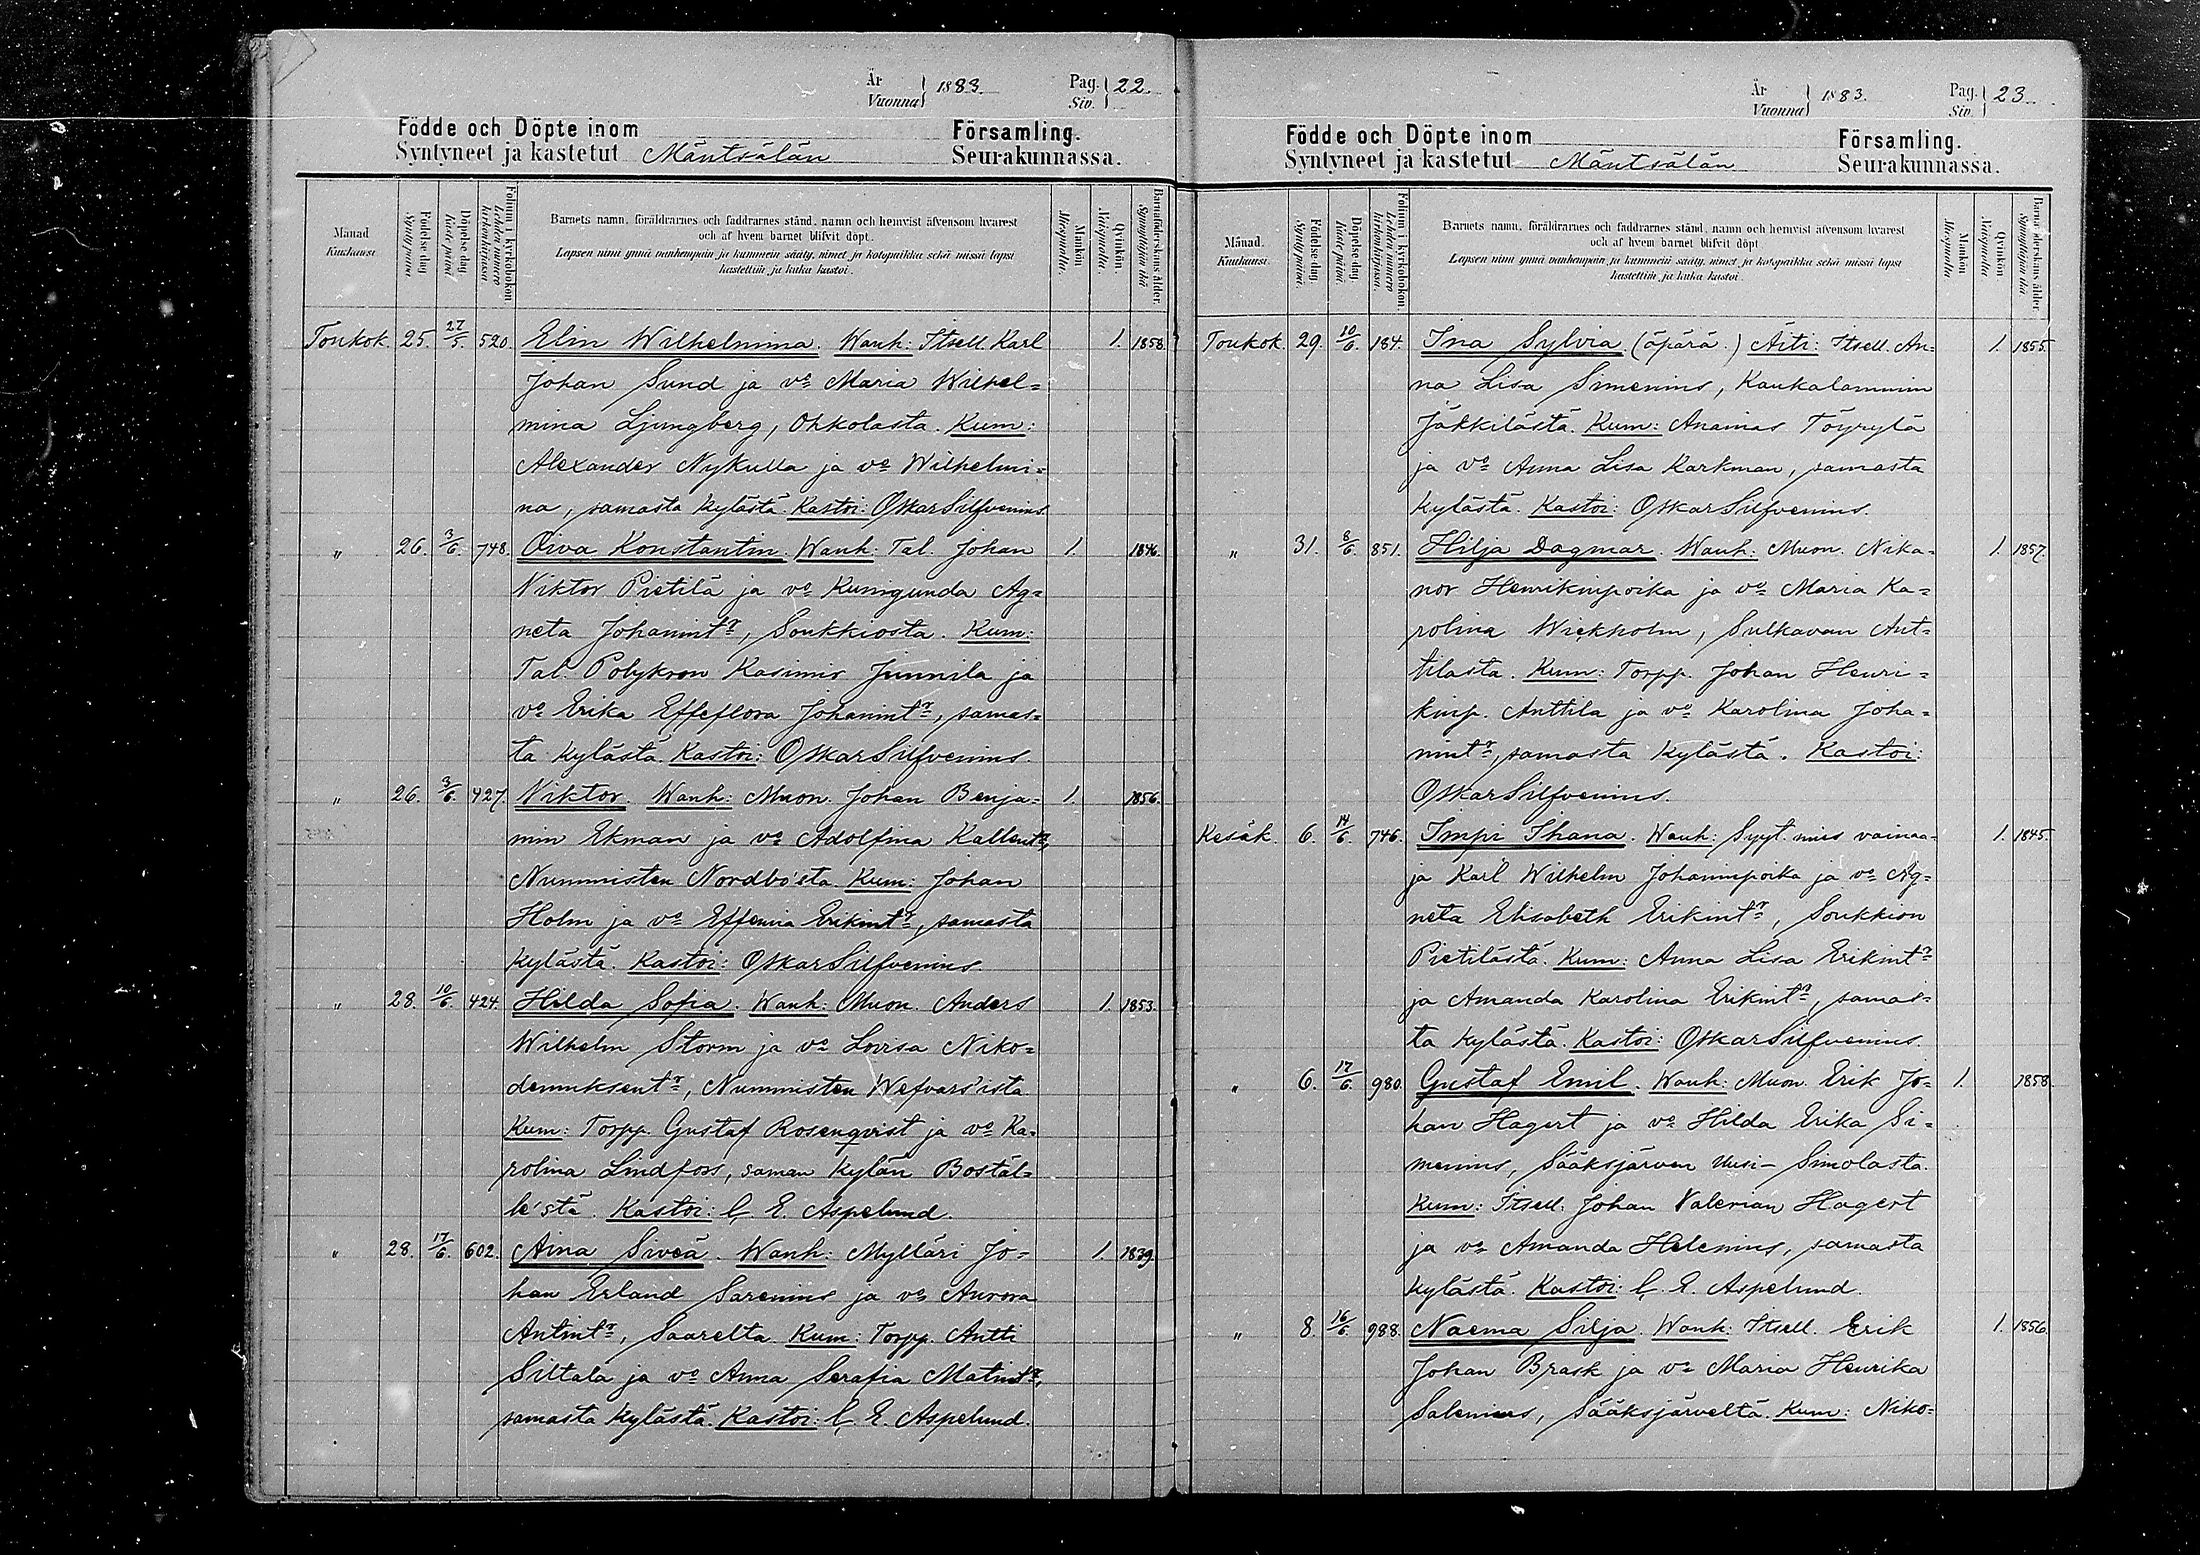 År
Vuonna } 1883.
Pag.
Siv. } 22.
Födde och Döpte inom Församling.
Syntyneet ja kastetut Mäntsälän Seurakunnassa.
Månad
Kuukausi
Födelse-dag.
Syntypäivä.
Döpelse-dag.
Kastepäivä.
Folium i kyrkobokon.
Lehden numero kirkonkirjassa.
Barnets namn, föräldrarnes och faddrarnes stånd, namn och hemvist äfvensom hvarest
och af hvem barnet blifvit döpt.
Lapsen nimi ynnä vanhempain ja kummein sääty, nimet ja kotopaikka sekä missä lapsi
kastettiin ja kuka kastoi.
Mankön
Miespuolta.
Qvinkön.
Naispuolta.
Barnaföderskans ålder.
Synnyttäjän ikä
Toukok. 25. 27/5. 520. Elin Wilhelmina. Wanh: Itsell. Karl 1. 1858
Johan Sund ja vo Maria Wilhel=
mina Ljungberg, Ohkolasta. Kum:
Alexander Nykulla ja vo Wilhelmi=
na, samasta kylästä. Kastoi: Oskar Silfvenius
" 26. 3/6. 748. Oiva Konstantin. Wanh: Tal. Johan 1. 1846.
Niktor Pietilä ja vo Kunigunda Ag=
neta Johanintr, Soukkiosta. Kum:
Tal. Polykron Kasimir Junnila ja
vo Erika Effeflora Johanintr, samas=
ta kylästä. Kastoi: Oskar Silfvenius.
" 26. 3/6. 427. Niktor. Wanh: Muon. Johan Benja= 1. 1856.
min Ekman ja vo Adolfina Kallentr,
Nummisten Nordbo'sta. Kum: Johan
Holm ja vo Effemia Erikintr, samasta
kylästä. Kastoi: Oskar Silfvenius
" 28. 10/6. 424. Hilda Sofia. Wanh: Muon. Anders 1. 1853.
Wilhelm Storm ja vo Lovisa Niko=
demuksentr, Nummisten Wefvars'ista.
Kum: Torpp. Gustaf Rosenqvist ja vo Ka=
rolina Lindfors, saman kylän Bostäl=
le'stä. Kastoi: C. E. Aspelund.
" 28. 17/6. 602. Aina Siveä. Wanh: Mylläri Jo= 1. 1839.
han Erland Sarenius ja vo Aurora
Antintr, Saarelta. Kum: Torpp. Antti
Siltala ja vo Anna Serafia Matintr,
samasta kylästä. Kastoi: C. E. Aspelund.
År
Vuonna } 1883.
Pag.
Siv. } 23.
Födde och Döpte inom Församling.
Syntyneet ja kastetut Mäntsälän Seurakunnassa.
Månad.
Kuukausi.
Födelse-dag.
Syntypäivä.
Döpelse-dag.
Kastepäivä.
Folium i kyrkobokon.
Lehden numero kirkonkirjassa.
Barnets namn, föräldrarnes och faddrarnes stånd, namn och hemvist äfvensom hvarest
och af hvem barnet blifvit döpt.
Lapsen nimi ynnä vanhempain ja kummein sääty, nimet ja kotopaikka sekä missä lapsi
kastettiin ja kuka kastoi.
Mankön
Miespuolta.
Qvinkön.
Naispuolta.
Barnaföderskans ålder.
Synnyttäjän ikä
Toukok. 29. 10/6. 184. Ina Sylvia (äpärä.) Äiti: Itsell. An= 1. 1855.
na Lisa Simenius, Kaukalammin
Jäkkilästä. Kum: Ananias Töyrylä
ja vo Anna Lisa Karkman, samasta
kylästä. Kastoi: Oskar Silfvenius.
" 31. 8/6. 851. Hilja Dagmar. Wanh: Muon. Nika= 1. 1857.
nor Henrikinpoika ja vo Maria Ka=
rolina Wickholm, Sulkavan Ant=
tilasta. Kum: Torpp. Johan Henri=
kinp. Anttila ja vo Karolina Joha=
nintr, samasta kylästä. Kastoi:
Oskar Silfvenius.
Kesäk. 6. 14/6. 746. Impi Ihana. Wanh: Syyt. mies vainaa= 1. 1845.
ja Karl Wilhelm Johaninpoika ja vo Ag=
neta Elisabeth Erikintr, Soukkion
Pietilästä. Kum: Anna Lisa Erikintr
ja Amanda Karolina Erikintr, samas=
ta kylästä. Kastoi: Oskar Silfvenius.
" 6. 17/6. 980. Gustaf Emil. Wanh: Muon. Erik Jo= 1. 1858.
han Hagert ja vo Hilda Erika Si=
menius, Sääksjärven Uusi-Simolasta.
Kum: Itsell. Johan Valerian Hagert
ja vo Amanda Helenius, samasta
kylästä. Kastoi: C. E. Aspelund.
" 8. 16/6. 988. Naema Silja. Wanh: Itsell. Erik 1. 1856.
Johan Brask ja vo Maria Henrika
Salenius, Sääksjärveltä. Kum: Niko=